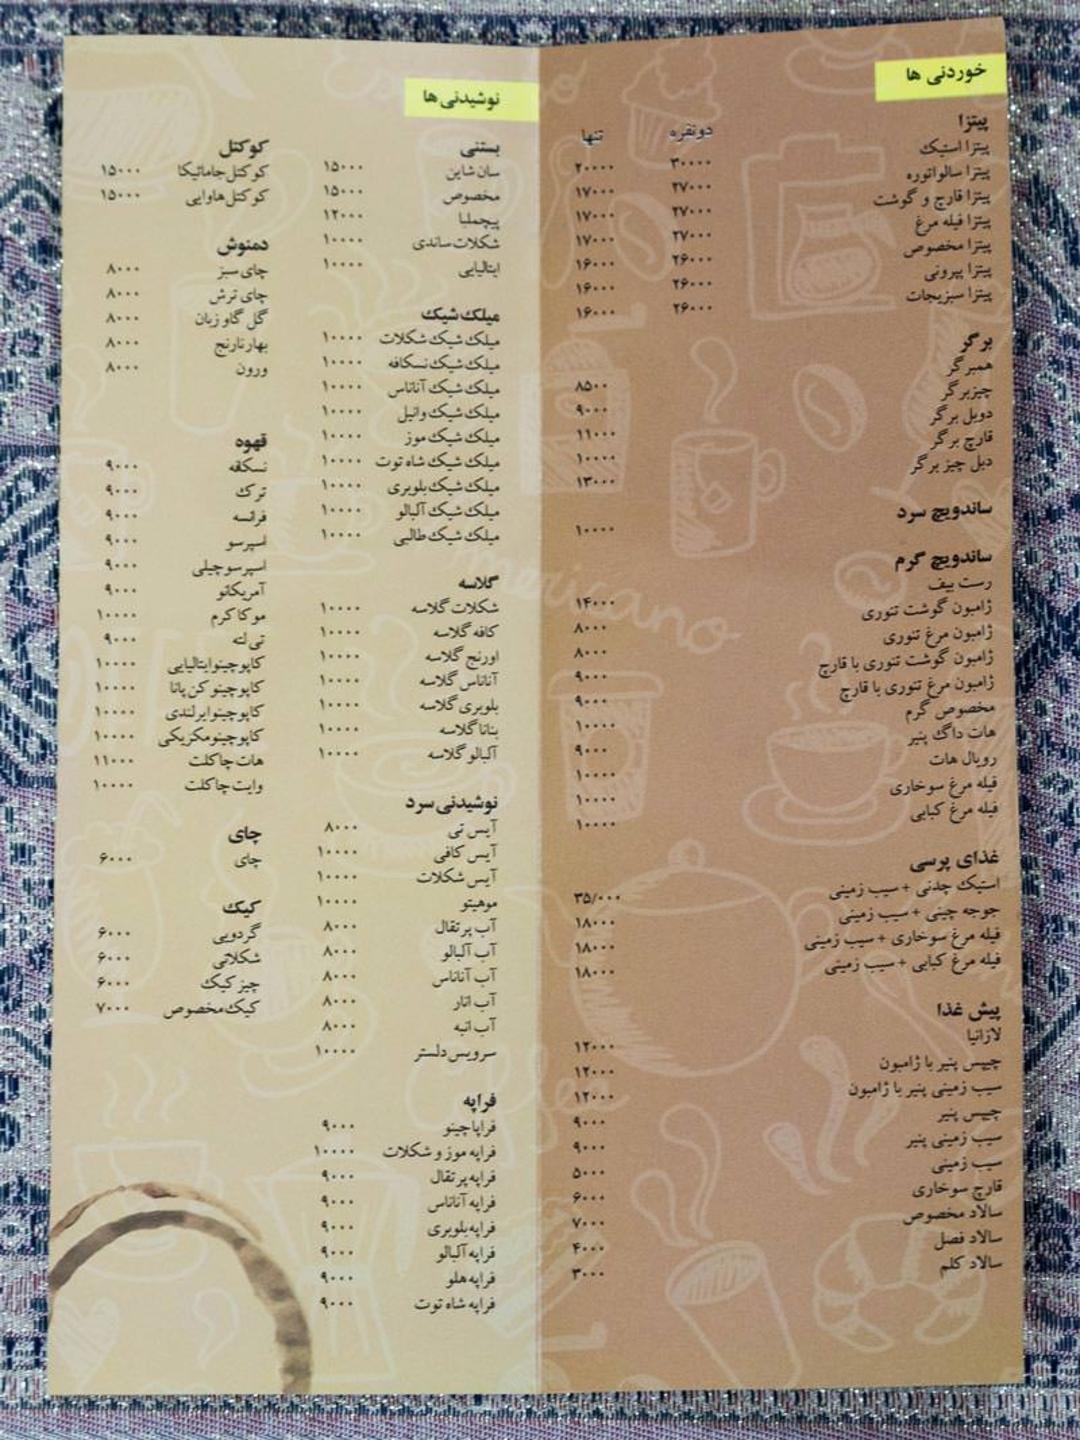 خوردنی ها
پیتزا دونفره تنها
پیتزا استیک ۳۰۰۰۰ ۲۰۰۰۰
پیتزا سالواتوره ۲۷۰۰۰ ۱۷۰۰۰
پیتزا قارچ و گوشت ۲۷۰۰۰ ۱۷۰۰۰
پیتزا فیله مرغ ۲۷۰۰۰ ۱۷۰۰۰
پیتزا مخصوص ۲۶۰۰۰ ۱۶۰۰۰
پیتزا پپرونی ۲۶۰۰۰ ۱۶۰۰۰
پیتزا سبزیجات ۲۶۰۰۰ ۱۶۰۰۰
برگر
همبرگر ۸۵۰۰
چیزبرگر ۹۰۰۰
دوبل برگر ۱۱۰۰۰
قارچ برگر ۱۰۰۰۰
دبل چیز برگر ۱۳۰۰۰
ساندویچ سرد ۱۰۰۰۰
ساندویچ گرم
رست بیف ۱۴۰۰۰
ژامبون گوشت تنوری ۸۰۰۰
ژامبون مرغ تنوری ۸۰۰۰
ژامبون گوشت تنوری با قارچ ۹۰۰۰
ژامبون مرغ تنوری با قارچ ۹۰۰۰
مخصوص گرم ۱۰۰۰۰
هات داگ پنیر ۹۰۰۰
رویال هات ۱۰۰۰۰
فیله مرغ سوخاری ۱۰۰۰۰
فیله مرغ کبابی ۱۰۰۰۰
غذای پرسی
استیک چدنی + سیب زمینی ۳۵/۰۰۰
جوجه چینی + سیب زمینی ۱۸۰۰۰
فیله مرغ سوخاری + سیب زمینی ۱۸۰۰۰
فیله مرغ کبابی + سیب زمینی ۱۸۰۰۰
پیش غذا
لازانیا ۱۲۰۰۰
چیپس پنیر با ژامبون ۱۲۰۰۰
سیب زمینی پنیر با ژامبون ۱۲۰۰۰
چیپس پنیر ۹۰۰۰
سیب زمینی پنیر ۹۰۰۰
سیب زمینی ۵۰۰۰
قارچ سوخاری ۶۰۰۰
سالاد مخصوص ۷۰۰۰
سالاد فصل ۴۰۰۰
سالاد کلم ۳۰۰۰
نوشیدنی ها
بستنی
سان شاین ۱۵۰۰۰
مخصوص ۱۵۰۰۰
پیچملبا ۱۲۰۰۰
شکلات ساندی ۱۰۰۰۰
ایتالیایی ۱۰۰۰۰
میلک شیک
میلک شیک شکلات ۱۰۰۰۰
میلک شیک نسکافه ۱۰۰۰۰
میلک شیک آناناس ۱۰۰۰۰
میلک شیک وانیل ۱۰۰۰۰
میلک شیک موز ۱۰۰۰۰
میلک شیک شاه توت ۱۰۰۰۰
میلک شیک بلوبری ۱۰۰۰۰
میلک شیک آلبالو ۱۰۰۰۰
میلک شیک طالبی ۱۰۰۰۰
گلاسه
شکلات گلاسه ۱۰۰۰۰
کافه گلاسه ۱۰۰۰۰
اورنج گلاسه ۱۰۰۰۰
آناناس گلاسه ۱۰۰۰۰
بلوبری گلاسه ۱۰۰۰۰
بنانا گلاسه ۱۰۰۰۰
آلبالو گلاسه ۱۰۰۰۰
نوشیدنی سرد
آیس تی ۸۰۰۰
آیس کافی ۱۰۰۰۰
آیس شکلات ۱۰۰۰۰
موهیتو ۱۰۰۰۰
آب پرتقال ۸۰۰۰
آب آلبالو ۸۰۰۰
آب آناناس ۸۰۰۰
آب انار ۸۰۰۰
آب انبه ۸۰۰۰
سرویس دلستر ۱۰۰۰۰
فراپه
فراپاچینو ۹۰۰۰
فراپه موز و شکلات ۱۰۰۰۰
فراپه پرتقال ۹۰۰۰
فراپه آناناس ۹۰۰۰
فراپه بلوبری ۹۰۰۰
فراپه آلبالو ۹۰۰۰
فراپه هلو ۹۰۰۰
فراپه شاه توت ۹۰۰۰
کوکتل
کوکتل جامائیکا ۱۵۰۰۰
کوکتل هاوایی ۱۵۰۰۰
دمنوش
چای سبز ۸۰۰۰
چای ترش ۸۰۰۰
گل گاو زبان ۸۰۰۰
بهار نارنج ۸۰۰۰
ورون ۸۰۰۰
قهوه
نسکافه ۹۰۰۰
ترک ۹۰۰۰
فرانسه ۹۰۰۰
اسپرسو ۹۰۰۰
اسپرسو چیلی ۹۰۰۰
آمریکانو ۹۰۰۰
موکا کرم ۱۰۰۰۰
تی لته ۹۰۰۰
کاپوچینو ایتالیایی ۱۰۰۰۰
کاپوچینو کن پانا ۱۰۰۰۰
کاپوچینو ایرلندی ۱۰۰۰۰
کاپوچینو مکزیکی ۱۰۰۰۰
هات چاکلت ۱۱۰۰۰
وایت چاکلت ۱۰۰۰۰
چای
چای ۶۰۰۰
کیک
گردویی ۶۰۰۰
شکلاتی ۶۰۰۰
چیز کیک ۶۰۰۰
کیک مخصوص ۷۰۰۰